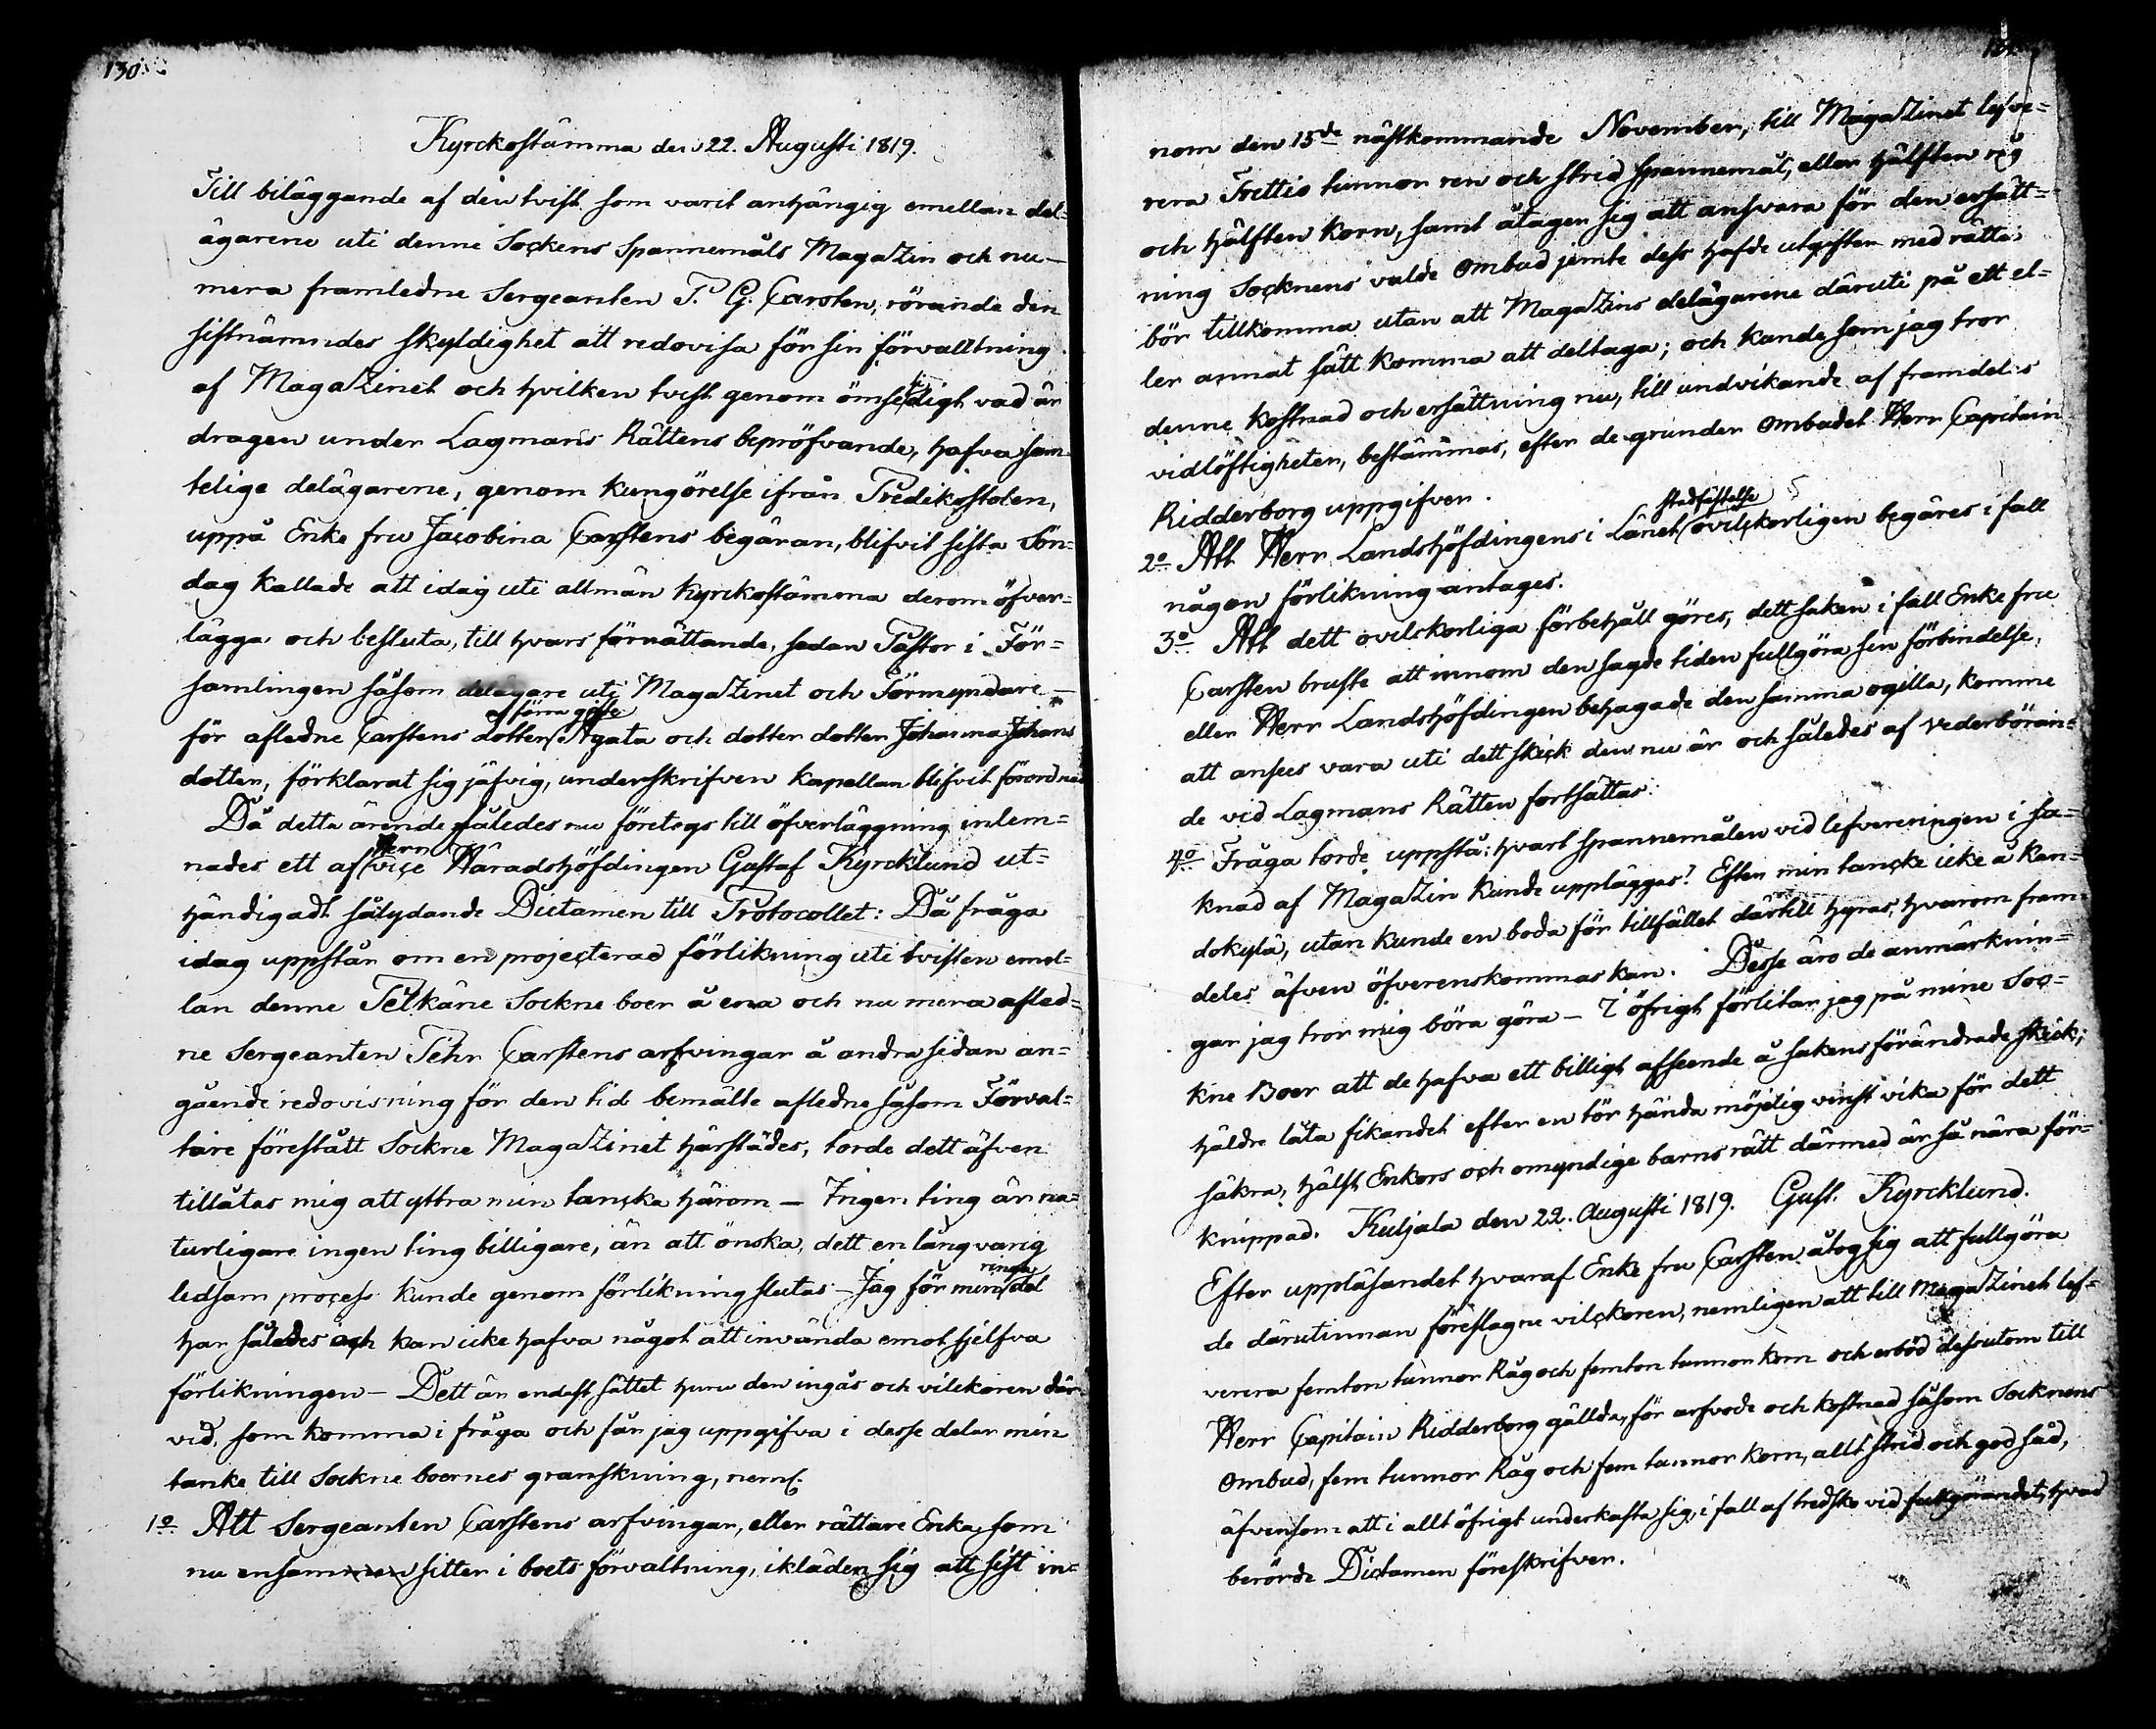 130
Kyrckostämma den 22. Augusti 1819.
Till biläggande af den tvist som varit anhängig emellan del-
ägarene uti denne Sockens Spannemåls Magatzin och nu-
mera framledne Sergeanten P. G. Carsten, rörande den
sistnämndes skyldighet att redovisa för sin förvalltning
af Magatzinet och hvilken tvist genom ömsesidigt vad är
dragen under Lagmans Rättens bepröfvande, hafva sam-
telige delägarene, genom kungörelse ifrån Predikostolen,
uppå Enke fru Jacobina Carstens begäran, blifvit sista Sön-
dag kallade att idag uti allmän Kyrckostämma derom öfver-
lägga och besluta, till hvars förrättande, sedan Pastor i För-
samlingen såsom delägare uti Magatzinet och Förmyndare
för afledne Carstens dotter af förra gifte Agata och dotter dotter Johanna Johans
dotter, förklarat sig jäfvig, underskrifven kapellan blifvit förordnad
Då detta ärende således nu företogs till öfverläggning inlem-
nades ett af Herr vice Häradshöfdingen Gustaf Kyrcklund ut-
händigadt sålydande Dictamen till Protocollet: Då fråga
idag uppstår om en projecterad förlikning uti tvisten emel-
lan denne Pelkäne Sockne boer å ena och nu mera afled-
ne Sergeanten Pehr Carstens arfvingar å andra sidan an-
gående redovisning för den tid bemälte afledne såsom Förval-
tare förestått Sockne Magatzinet härstädes, torde dett äfven
tillåtas mig att yttra min tancka härom — Ingen ting är na-
turligare ingen ting billigare, än att önska, dett en långvarig
ledsam process kunde genom förlikning slutas — Jag för min ringa del
har således och kan icke hafva något att invända emot sjelfva
förlikningen — Dett är endast sättet huru den ingås och vilckoren där-
vid, som komma i fråga och får jag uppgifva i desse delar min
tanke till Sockne boernes granskning, neml.
1o Att Sergeanten Carstens arfvingar, eller rättare Enka som
nu ensam sitter i boets förvaltning, ikläder sig att sist in-
nom den 15de nästkommande November, till Magatzinet lefve-
rera Trettio tunnor ren och strid Spannemål, eller hälften råg
och hälften korn, samt åtager sig att ansvara för den ersätt-
ning Socknens valde ombud jemte dess hafde utgifter med rätta
bör tillkomma utan att Magatzins delägarene däruti på ett el-
ler annat sätt komma att deltaga; och kunde som jag tror
denne kostnad och ersättning nu, till undvikande af framdeles
vidlöftigheter, bestämmas, efter de grunder ombudet Herr Capitain
Ridderborg uppgifver.
2o Att Herr Landshöfdingens i Länet stadfästelse ovilckorligen begäres i fall
någon förlikning antages.
3o Att dett ovilckorliga förbehåll göres, dett saken i fall Enke fru
Carsten bruste att innom den sagde tiden fullgöra sin förbindelse,
eller Herr Landshöfdingen behagade den samma ogilla, komme
att anses vara uti dett skick den nu är och således af vederböran-
de vid Lagmans Rätten fortsättas.
4o Fråga torde uppstå: hvart spannemålen vid lefvereringen i sa-
knad af Magatzin kunde uppläggas? Efter min tancke icke å Kan-
dokylä, utan kunde en boda för tillfället därtill hyras, hvarom fram-
deles äfven öfverenskommas kan. Desse äro de anmärknin-
gar jag tror mig böra göra — I öfrigt förlitar jag på mine Soc-
kne Boer att de hafva ett billigt afseende å sakens förändrade skick;
häldre låta fikandet efter en tör hända möjelig vinst vika för dett
säkra, hälst Enkors och omyndige barns rätt därmed är så nära för-
knippad. Kuljala den 22. Augusti 1819. Gust. Kyrcklund.
Efter uppläsandet hvaraf Enke fru Carsten åtog sig att fullgöra
de därutinnan föreslagne vilckoren, nemligen att till Magatzinet lef-
verera femton tunnor Råg och femton tunnor korn och erböd dessutom till
Herr Capitain Ridderborg gällda, för arfvode och kostnad såsom Socknens
ombud, fem tunnor Råg och fem tunnor korn, allt strid och god säd,
äfvensom att i allt öfrigt underkasta sig, i fall af tredsko vid fullgörandet, hvad
berörde Dictamen föreskrifver.